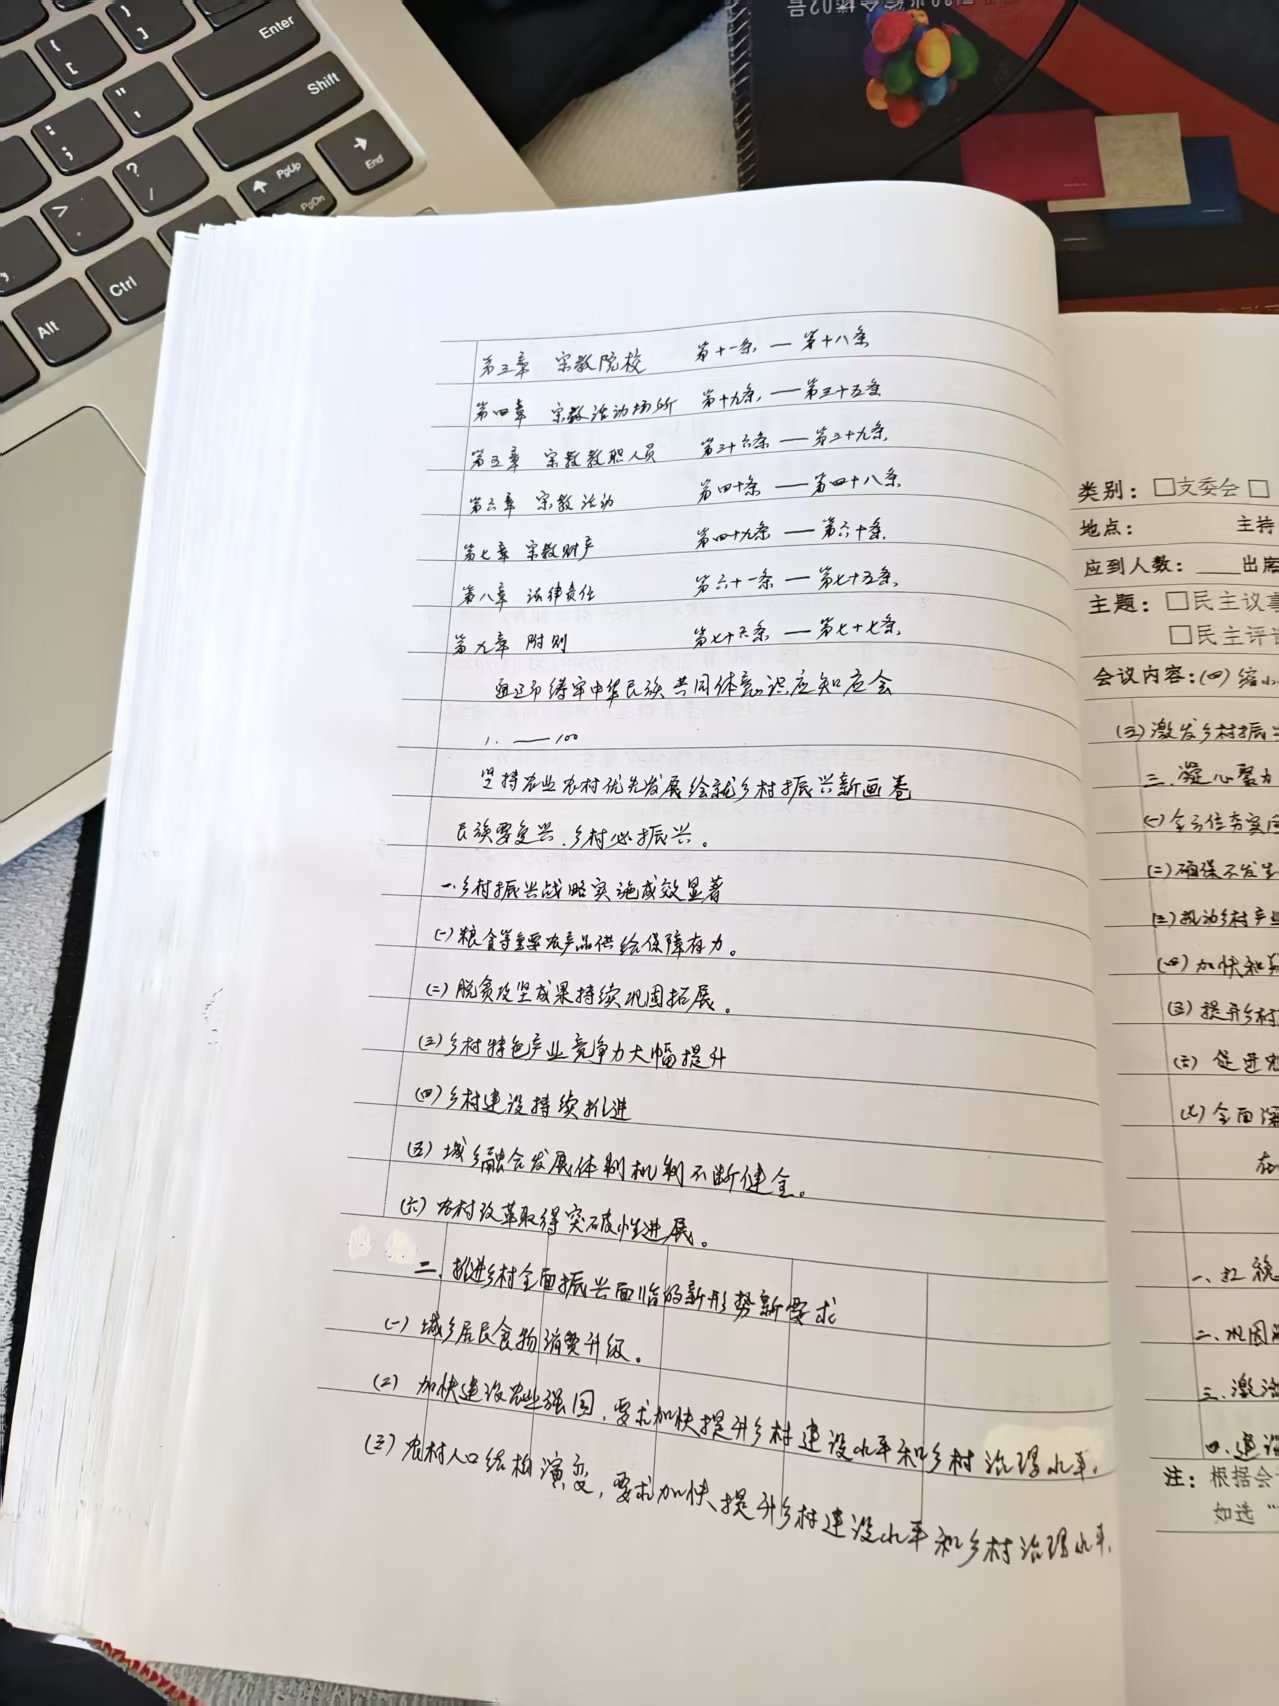 Enter
Shift
End
PgUp
PgDn
Ctrl
Alt
第三章 宗教院校 第十一条 — 第十八条
第四章 宗教活动场所 第十九条 — 第三十五条
第五章 宗教教职人员 第三十六条 — 第三十九条
第六章 宗教活动 第四十条 — 第四十八条
第七章 宗教财产 第四十九条 — 第六十条
第八章 法律责任 第六十一条 — 第七十五条
第九章 附则 第七十六条 — 第七十七条
铸牢中华民族共同体意识应知应会
1. — 100
坚持农业农村优先发展绘就乡村振兴新画卷
民族要复兴,乡村必振兴。
一、乡村振兴战略实施成效显著
(一)粮食等重要农产品供给保障有力。
(二)脱贫攻坚成果持续巩固拓展。
(三)乡村特色产业竞争力大幅提升
(四)乡村建设持续推进
(五)城乡融合发展体制机制不断健全。
(六)农村改革取得突破性进展。
二、推进乡村全面振兴面临的新形势新要求
(一)城乡居民食物消费升级。
(二)加快建设农业强国,要求加快提升乡村建设水平和乡村治理水平.
(三)农村人口结构演变,要求加快提升乡村建设水平和乡村治理水平.
类别:□支委会 □
地点: 主持
应到人数:____出席
主题:□民主议事
□民主评议
会议内容:(四)缩小
(五)激发乡村振兴
三、凝心聚力
(一)全方位夯实
(二)确保不发生
(三)推动乡村产业
(四)加快和美
(五)提升乡村
(六)促进
(七)全面深
一、扛稳
二、巩固
三、激活
四、建设
注:根据会
如选“